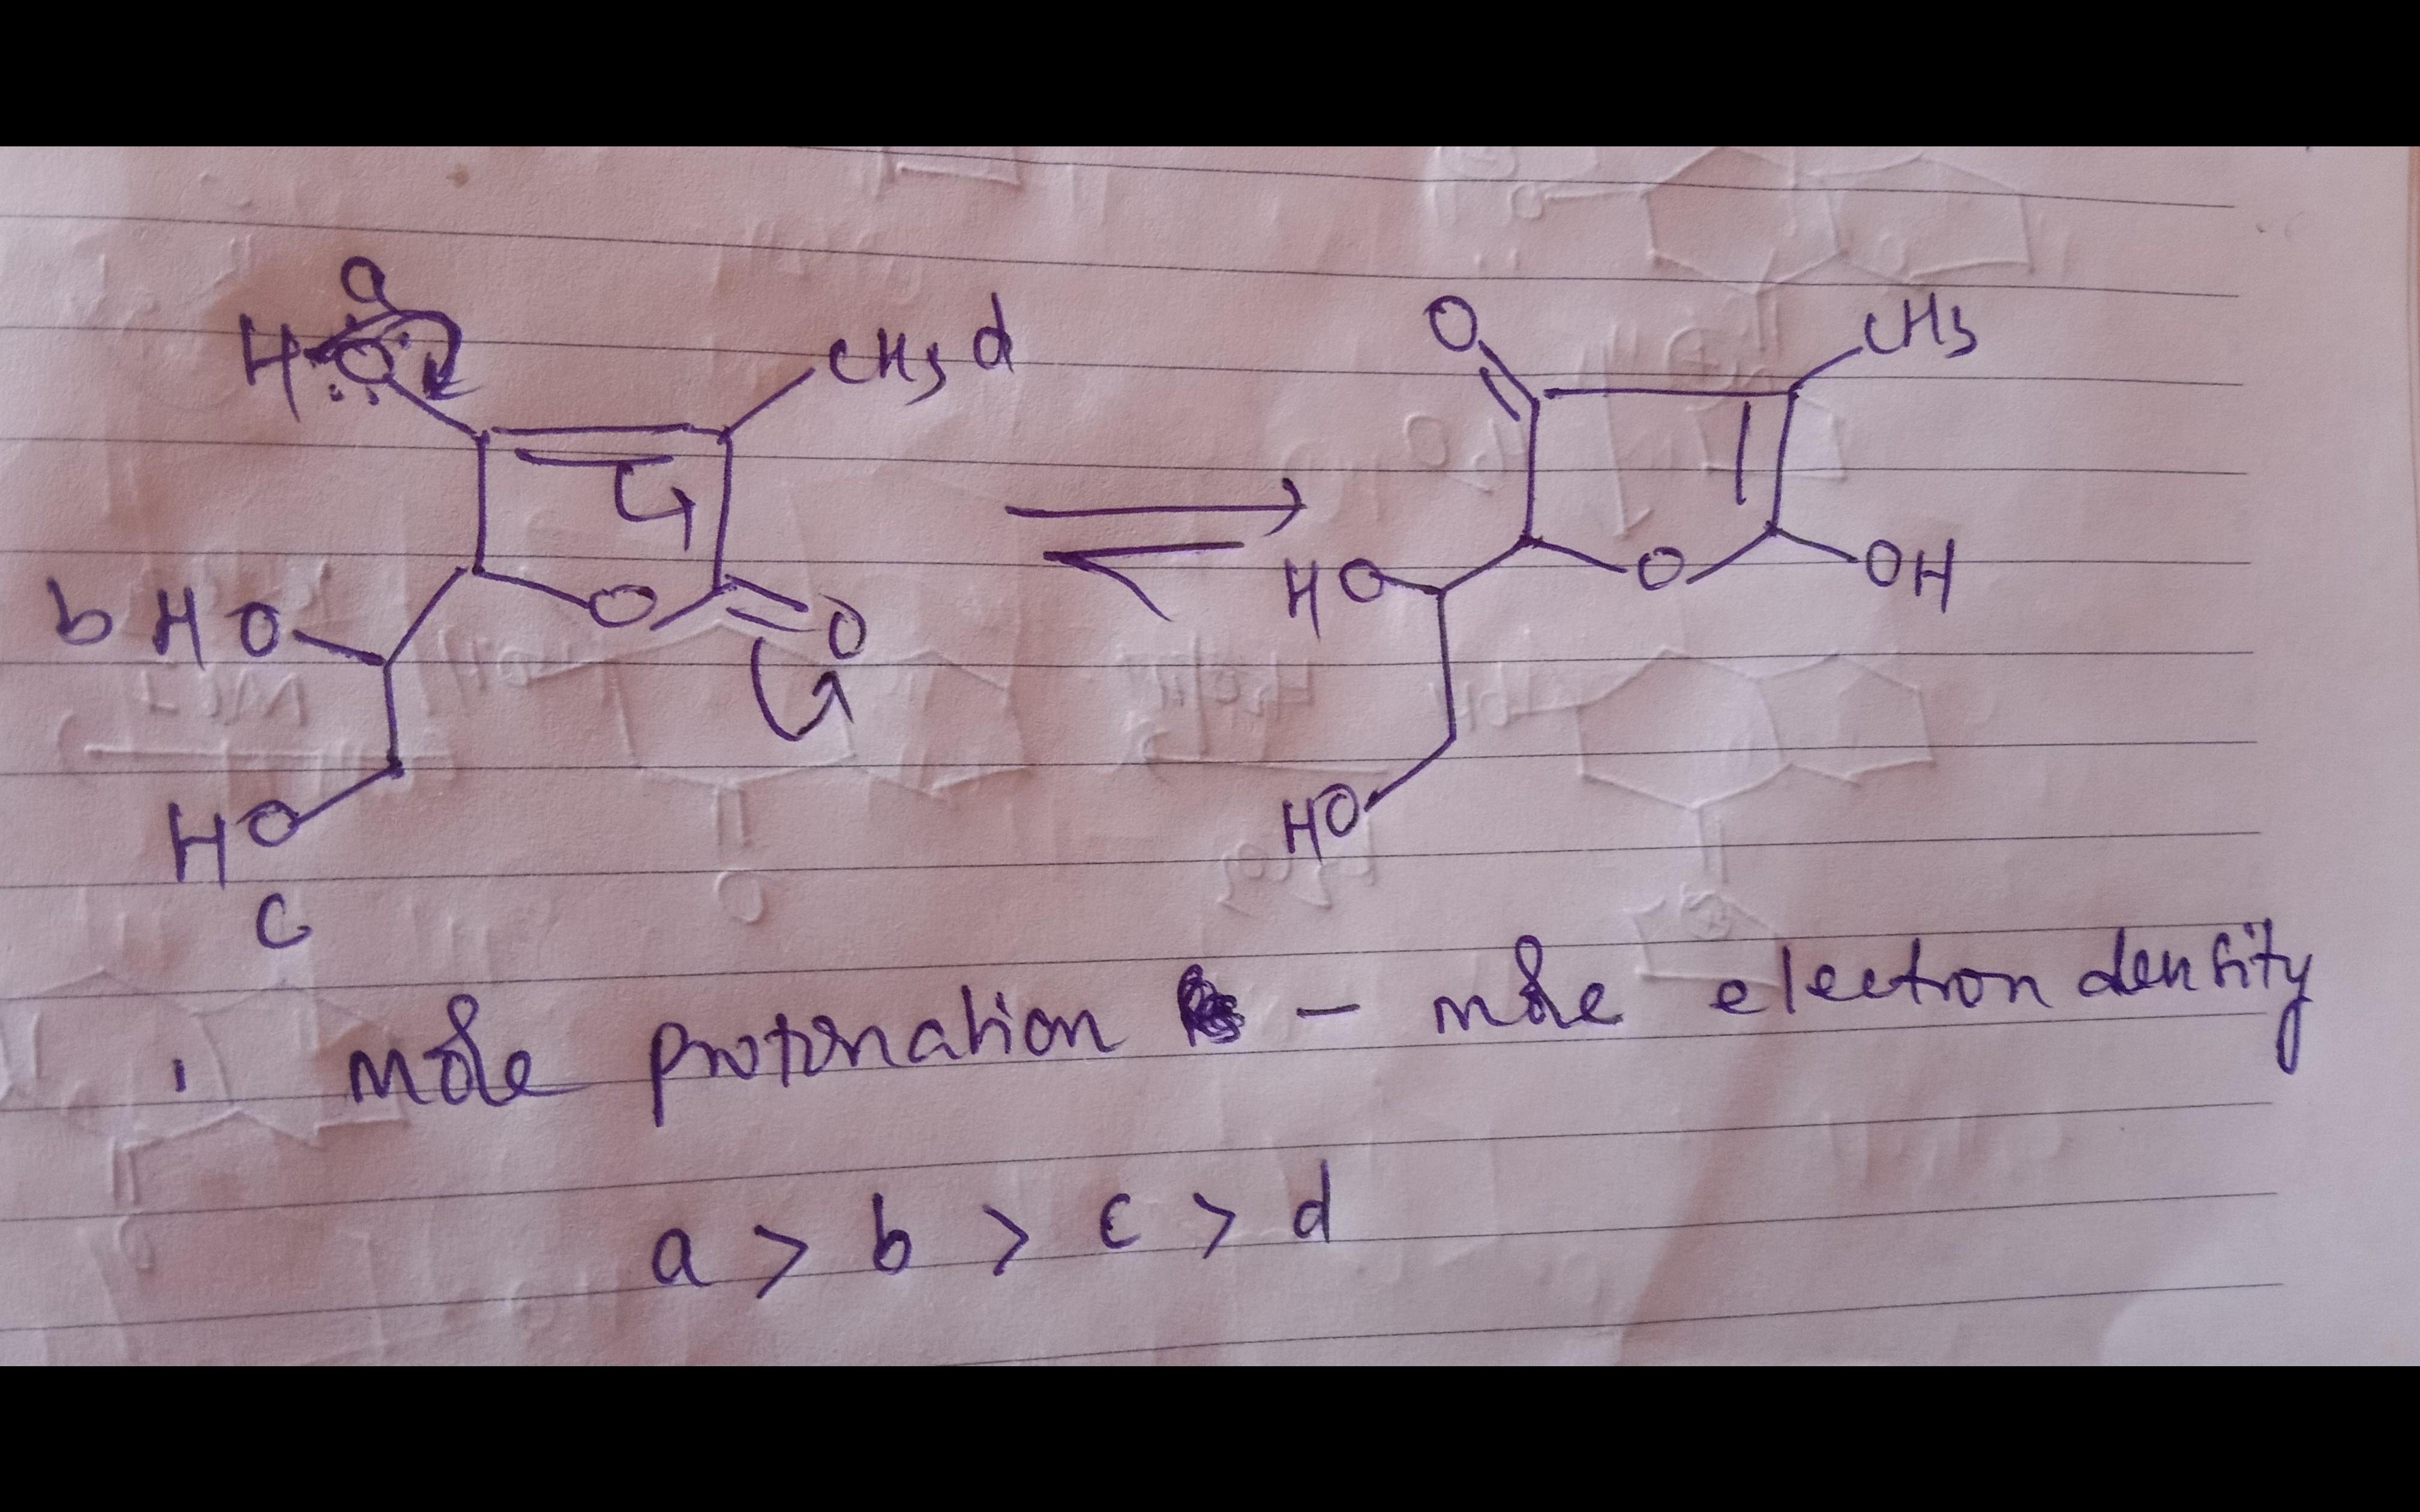 a
H O CH3 d
O CH3
b HO O O
HO O OH
HO
c
HO
more protonation – more electron density
a > b > c > d